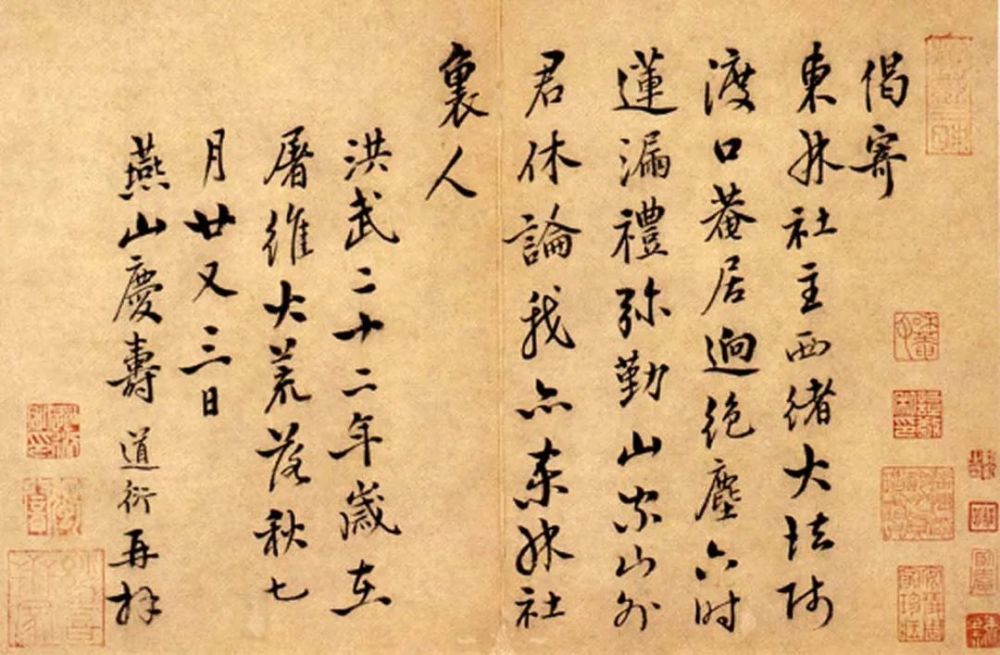 偈寄
東林社主西緒大法師
渡口菴居迥绝塵六时
蓮漏禮弥勤山家山外
君休論我亦東林社
裏人
洪武二十二年歲在
屠維大荒落秋七
月廿又三日
燕山慶壽道衍再拜